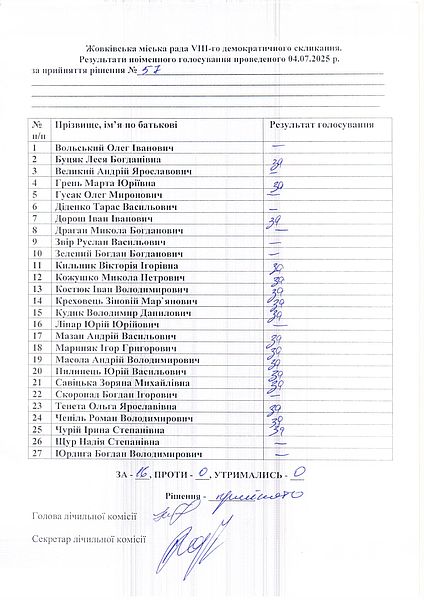 Жовківська міська рада VIII-го демократичного скликання.
Результати поіменного голосування проведеного 04.07.2025 р.
за прийняття рішення № 57
№ п/п Прізвище, ім’я по батькові Результат голосування
1 Вольський Олег Іванович —
2 Буцяк Леся Богданівна за
3 Великий Андрій Ярославович —
4 Грень Марта Юріївна за
5 Гусак Олег Миронович —
6 Діденко Тарас Васильович —
7 Дорош Іван Іванович за
8 Драган Микола Богданович —
9 Звір Руслан Васильович —
10 Зелений Богдан Богданович —
11 Кильник Вікторія Ігорівна за
12 Кожушко Микола Петрович за
13 Костюк Іван Володимирович за
14 Креховець Зіновій Мар`янович за
15 Кудик Володимир Данилович за
16 Ліпар Юрій Юрійович —
17 Мазан Андрій Васильович за
18 Мариняк Ігор Григорович за
19 Масола Андрій Володимирович за
20 Пилипець Юрій Васильович за
21 Савіцька Зоряна Михайлівна за
22 Скоропад Богдан Ігорович —
23 Тенета Ольга Ярославівна за
24 Чепіль Роман Володимирович за
25 Чурій Ірина Степанівна за
26 Щур Надія Степанівна —
27 Юрдига Богдан Володимирович —
ЗА - 16, ПРОТИ - 0, УТРИМАЛИСЬ - 0
Рішення - прийнято
Голова лічильної комісії
Секретар лічильної комісії